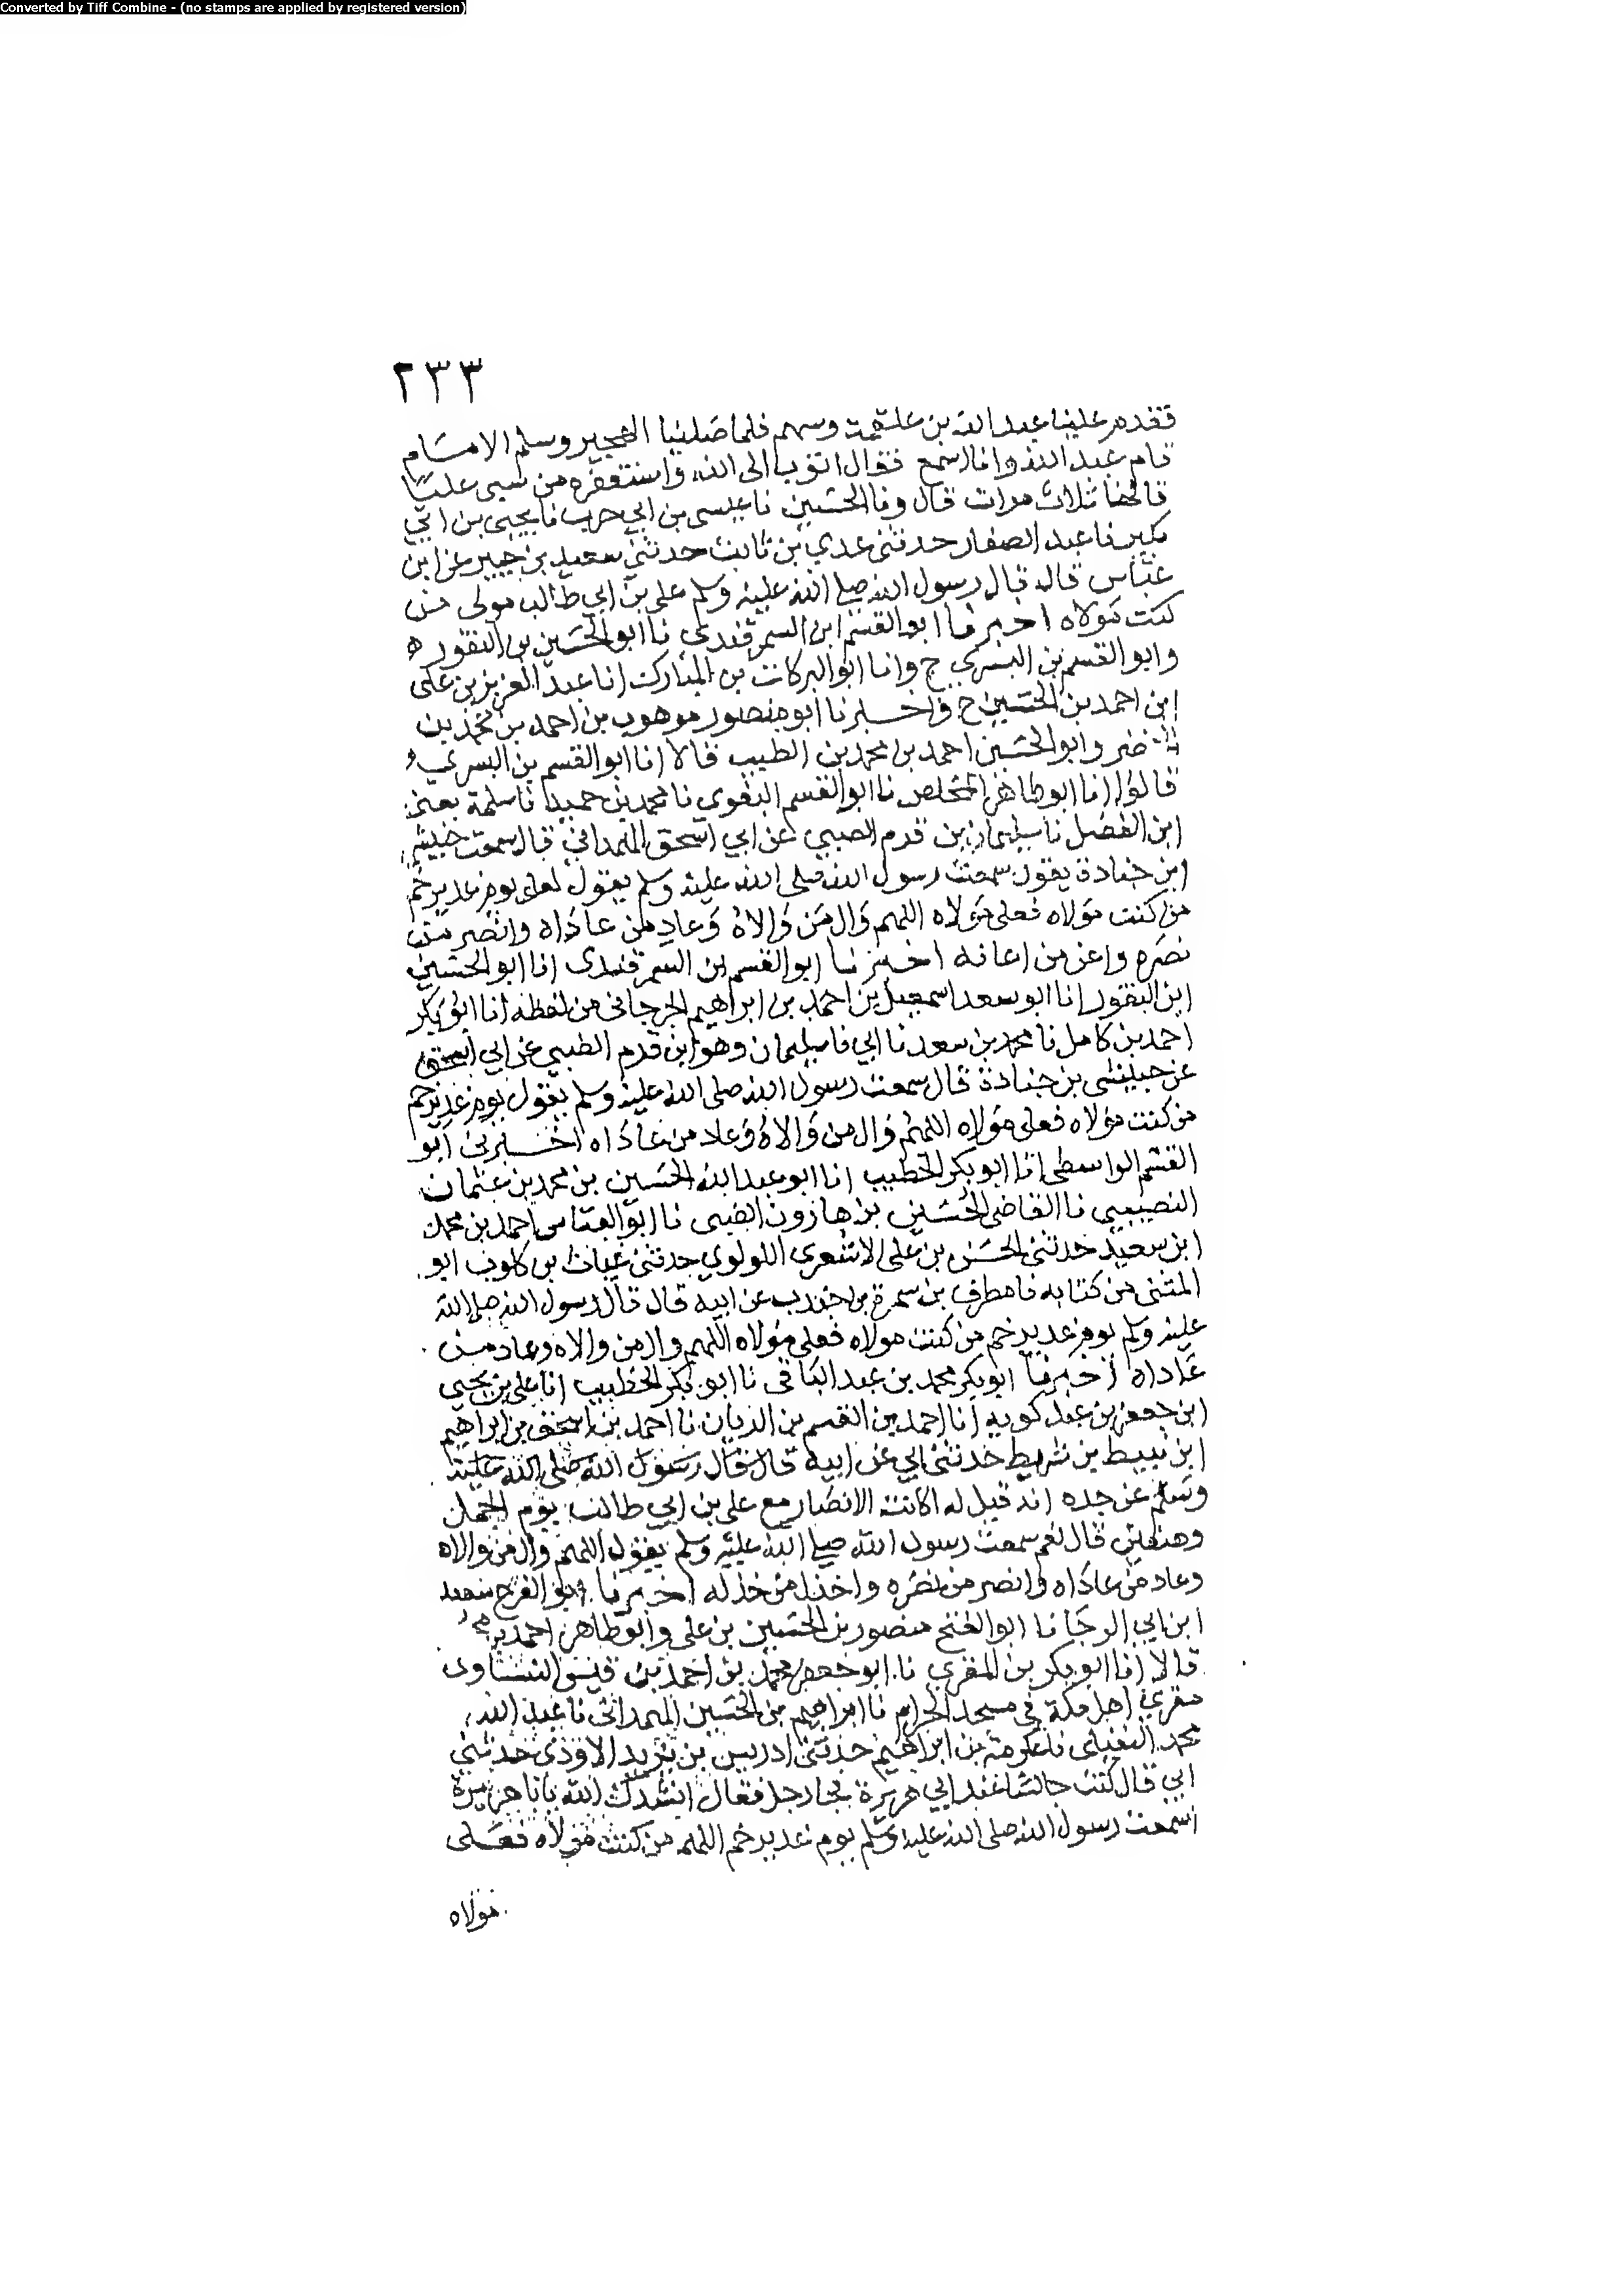 Converted by Tiff Combine - (no stamps are applied by registered version)
٢٣٣
فقدم علينا عبد الله بن علقمة وسهم فلما صلينا الهجير وسلم الامام
قام عبد الله وانا اسمع فقال اتوب الى الله واستغفره من سبي عليا
قالها ثلاث مرات قال ونا الحسين نا عيسى بن ابي حرب نا يحيى بن ابي
بكير نا عبد الصفار حدثني عدي بن ثابت حدثني سعيد بن جبير عن ابن
عباس قال قال رسول الله صلى الله عليه وسلم علي بن ابي طالب مولى من
كنت مولاه اخبرنا ابو القسم ابن السمرقندي نا ابو الحسين بن النقور ه
وابو القسم بن البسري ح وانا ابو البركات بن المبارك انا عبد العزيز بن علي
ابن احمد بن الحسين ح واخبرنا ابو منصور موهوب بن احمد بن محمد بن
ضر وابو الحسين احمد بن محمد بن الطيب قالا انا ابو القسم بن البسري
قالوا انا ابو طاهر المخلص نا ابو القسم البغوي نا محمد بن حميد نا سلمة يعني
ابن الفضل نا سليمان بن قرم الضبي عن ابي اسحق الهمداني قال سمعت حبشي
ابن جنادة يقول سمعت رسول الله صلى الله عليه وسلم يقول لعلي يوم غدير خم
من كنت مولاه فعلي مولاه اللهم وال من والاه وعاد من عاداه وانصر من
نصره واعن من اعانه اخبرنا ابو القسم ابن السمرقندى انا ابو الحسين
ابن النقور انا ابو سعد اسمعيل بن احمد بن ابراهيم الجرجاني من لفظه انا ابو بكر
احمد بن كامل نا محمد بن سعد نا ابي نا سليمان وهو ابن قرم الضبي عن ابي اسحق
عن حبشي بن جنادة قال سمعت رسول الله صلى الله عليه وسلم يقول يوم غدير خم
من كنت مولاه فعلي مولاه اللهم وال من والاه وعاد من عاداه اخبرني ابو
القسم الواسطي انا ابو بكر الخطيب انا ابو عبد الله الحسين بن محمد بن عثمان
النصيبي نا القاضي الحسين بن هارون الضبي نا ابو العباس احمد بن محمد
ابن سعيد حدثني الحسن بن علي الاشعري اللولوي حدثني غياث بن كلوب ابو
المثنى من كتابه نا مطرف بن سمرة بن جندب عن ابيه قال قال رسول الله صلى الله
عليه وسلم يوم غدير خم من كنت مولاه فعلي مولاه اللهم وال من والاه وعاد من
عاداه اخبرنا ابو بكر محمد بن عبد الباقي نا ابو بكر الخطيب انا علي بن يحيى
ابن جعفر بن عبد كويه انا احمد بن القسم بن الريان نا احمد بن اسحق بن ابراهيم
ابن نبيط بن شريط حدثني ابي عن ابيه قال قال رسول الله صلى الله عليه
وسلم عن جده انه قيل له اكانت الانصار مع علي بن ابي طالب يوم الجمل
وصفين قال نعم سمعت رسول الله صلى الله عليه وسلم يقول اللهم وال من والاه
وعاد من عاداه وانصر من نصره واخذل من خذله اخبرنا ابو الفرج سعيد
ابن ابي الرجا نا ابو الفتح منصور بن الحسين بن علي وابو طاهر احمد بن
قالا انا ابو بكر بن المقري نا ابو جعفر محمد بن احمد بن قيس
مقري اهل مكة في مسجد الحرام نا ابراهيم بن الحسين الهمداني نا عبد الله
محمد النفيلي نا عكرمة بن ابراهيم حدثني ادريس بن يزيد الاودي حدثني
ابي قال كنت جالسا عند ابي هريرة فجا رجل فقال انشدك الله يا با هريرة
اسمعت رسول الله صلى الله عليه وسلم يوم غدير خم اللهم من كنت مولاه فعلى
مولاه